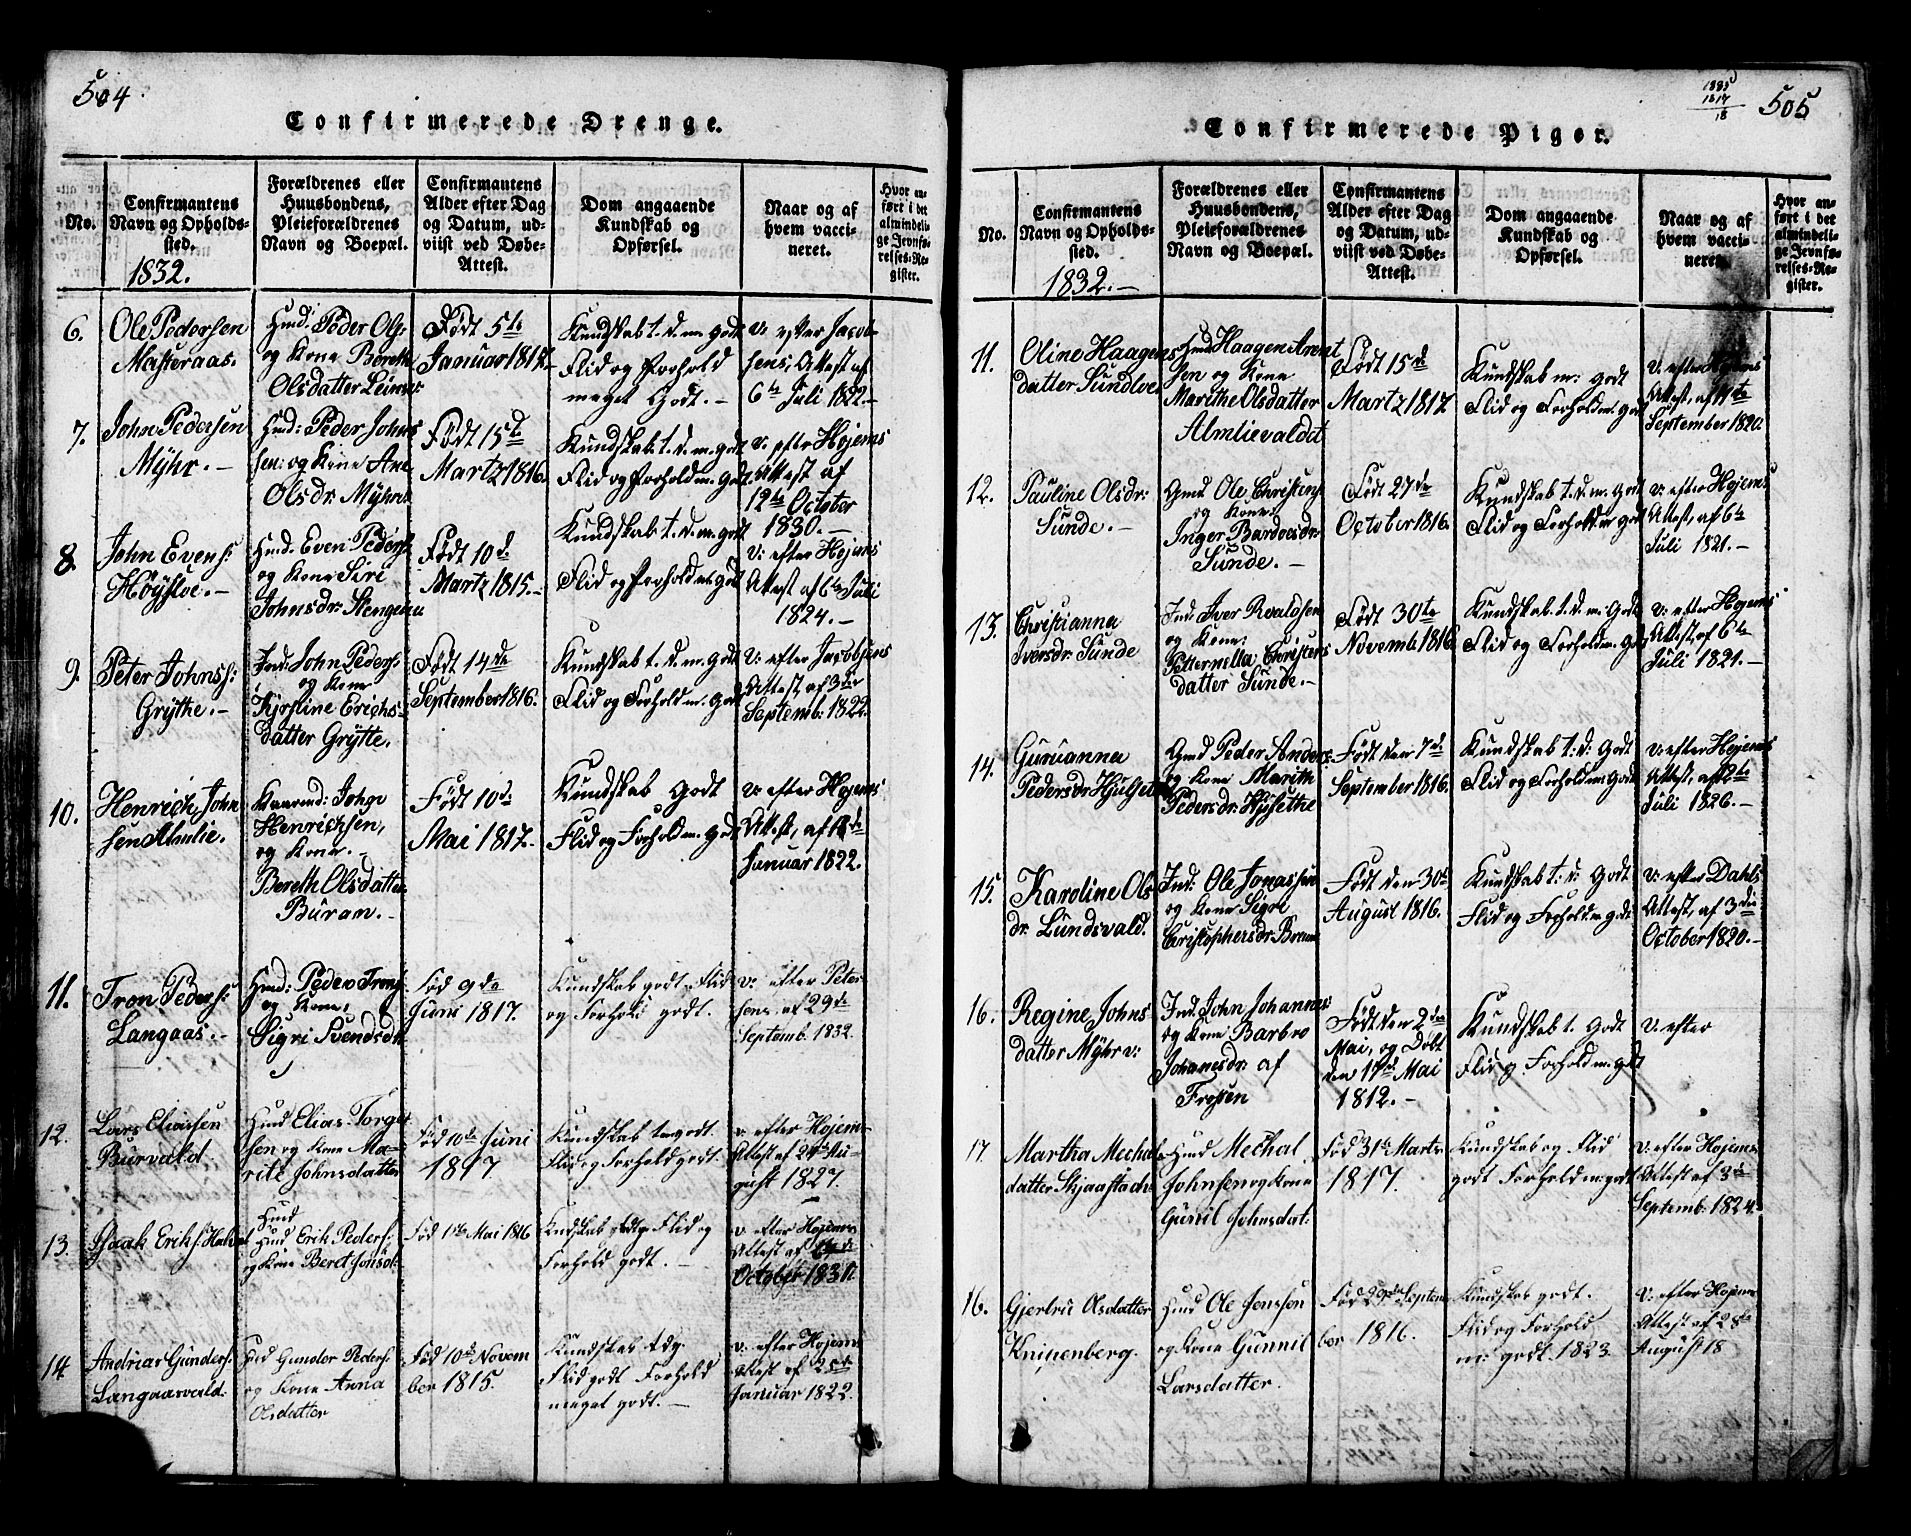 504.
Confirmerede Drenge.
No.
Confirmantens
Navn og Opholds-
sted.
1832.
Forældrenes eller
Huusbondens,
Pleieforældrenes
Navn og Boepæl.
Confirmantens
Alder efter Dag
og Datum, ud-
viist ved Døbe-
Attest.
Dom angaaende
Kundskab og
Opførsel.
Naar og af
hvem vacci-
neret.
Hvor an-
ført i det
almindeli-
ge Jevnfø-
relses-Re-
gister.
6.
Ole Pedersen
Masteraas.
Hmd: Peder Ols:
og Kone Bereth
Olsdatter
Født 5te
Januar 1817.
Kundskab t. d. m. godt
Flid og Forhold
meget Godt. –
v: efter Jacob-
sens, Attest af
6te Juli 1822. –
7.
John Pedersen
Mÿhr. –
Hmd: Peder Johns
sen: og Kone Ane
Olsdr. Mÿhre
Født 15de
Martz 1816.
Kundskab t. d. m. godt
Flid og Forhold m. Godt.
v: efter Højems
Attest af
12te October
1830. –
8.
John Evens:
Høÿsloe. –
Hmd: Even Peders:
og Kone Siri
Johnsdr:
Født 10de
Martz 1815. –
Kundskab t. d. m. godt
Flid og Forhold m. Godt
v: efter Højems
Attest af 6te Juli
1824. –
9.
Peter Johnss:
Grÿthe. –
Ind: John Peders:
og Kone
Kjerstine Erichs-
datter Grÿtte.
Født 14de
September 1816.
Kundskab t. d. m. godt
Flid og Forhold m. Godt
v: efter Jacobsens
Attest, af 3die
Septemb: 1822.
10.
Henrich John
sen Almlie.
John
Henrichsen,
og Kone. –
Bereth Olsdatter
Buran. –
Født 10de
Mai 1817.
Kundskab Godt
Flid og Forhold m. godt
v: efter Højems
Attest, af
Januar 1822.
11.
Tron Peders:
Langaas. –
Hmd: Peder Trons
og Kone,
Sigri Svendsdr.
Fød 9de
Juni 1817.
Kundskab godt, Flid
og Forhold godt.
v: efter Peter
sens. af 29de
Septemb. 1832.
12.
Lars Eliassen
Burvald
Hmd Elias Torget
sen og Kone Ma-
rite Johnsdatter
Fød 10de Juni
1817.
Kundskab godt.
Flid og Forhold godt.
v. efter Højems
Attest af 24de Au-
gust 1827.
13.
Isaak Eriks:
Hmd
Hmd Erik Peders:
og Kone Beret Jonsdr:
Fød 1te Mai 1816
Kundskab tdg Flid og
Forhold godt. –
v. efter Højems
Attest af
October 1831.
14.
Andrias Gunders:
Langaasvald.
Hmd Gunder Peders:
og Kone Anna
Olsdatter
Fød 10de Novem
ber 1815.
Kundskab tdg.
Flid godt Forhold
meget godt. –
v. efter Højems
Attest af
Januar 1822.
1885
1817
18
505
Confirmerede Piger.
No.
Confirmantens
Navn og Opholds-
sted.
1832. –
Forældrenes eller
Huusbondens,
Pleieforældrenes
Navn og Boepæl.
Confirmantens
Alder efter Dag
og Datum, ud-
viist ved Døbe-
Attest.
Dom angaaende
Kundskab og
Opførsel.
Naar og af
hvem vacci-
neret.
Hvor an-
ført i det
almindeli-
ge Jevnfø-
relses-Re-
gister.
11.
Oline Haagens
datter Sundloe
Hmd Haagen Arent
sen og Kone
Marithe Olsdatter
Almlievaldet
Født 15de
Martz 1817.
Kundskab m: godt
Flid og Forhold m. godt
v: efter Højems
Attest, af 14te
September 1820.
12.
Pauline Olsdr:
Sunde. –
Gmd Ole Christens
og Kone:
Inger Bardosdr
Sunde. –
Født 27de
October 1816.
Kundskab t. d. m. godt
Flid og Forhold m godt
v: efter Højems
Attest, af 6te
Juli 1821. –
13.
Christianna
Iversdr: Sunde
Ind: Iver Roaldsen
og Kone:
Petternella Christens
datter Sunde. –
Født 30te
Novemb. 1816
Kundskab. t. d. m: godt
Flid og Forhold m. godt
v: efter Højems
Attest, af 6te
Juli 1821. –
14.
Gurianna
Pedersdr
Gmd Peder Anders:
og Kone Marith
Pedersdr:
Født den 7de
September 1816.
Kundskab t: d: Godt
Flid og Forhold m: Godt
v: efter Højems
Attest, af 12te
Juli 1826. –
15.
Karoline Ols
dr. Lundsvald.
Ind: Ole Jonassen
og Kone Sigri
Christophersdr.
Født den 30te
August 1816.
Kundskab t: d: Godt
Flid og Forhold m. godt
v: efter Dahls
Attest, af 3die
October 1820. –
16.
Regine Johns
datter Mÿhr v:
Ind: John Johannes:
og Kone Barbro
Johanesdr: af
Født den 2den
Mai, og Døbt
den 17de Mai
1812. –
Kundskab t. Godt
Flid og Forhold m. godt
v: efter
17
Martha Mechals
datter
Hmd Mechal
Johnsen og Kone
Gunnil Johnsdat.
Fød 31te Marts
1817.
Kundskab og Flid
godt Forhold m: godt
v: efter Højems
Attest af 3die
Septemb. 1824.
16.
Gjertru Olsdatter
Knipenberg.
Hmd Ole Jenssen
og Kone Gunnil
Larsdatter.
Fød 29de Septem
ber 1816.
Kundskab godt.
Flid og Forhold
m: godt. 1823.
v: efter Højems
Attest af 28de
August 18